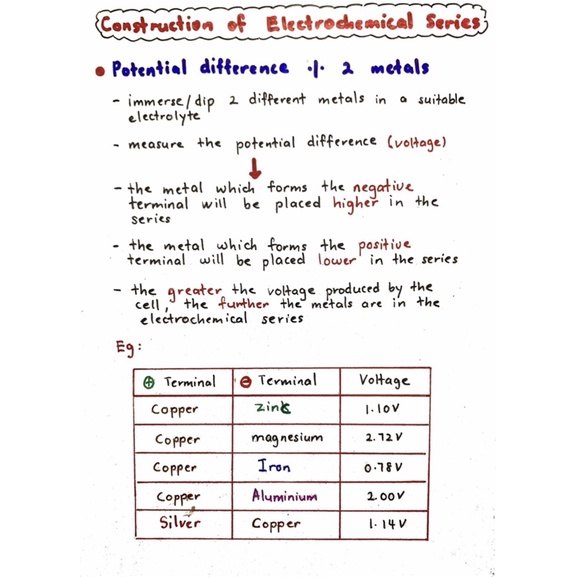 Construction of Electrochemical Series
• Potential difference ·/· 2 metals
- immerse/dip 2 different metals in a suitable
electrolyte
- measure the potential difference (voltage)
- the metal which forms the negative
terminal will be placed higher in the
series
- the metal which forms the positive
terminal will be placed lower in the series
- the greater the voltage produced by the
cell, the further the metals are in the
electrochemical series
Eg:
⊕ Terminal ⊖ Terminal Voltage
Copper zink 1.10V
Copper magnesium 2.72V
Copper Iron 0.78V
Copper Aluminium 2.00V
Silver Copper 1.14V